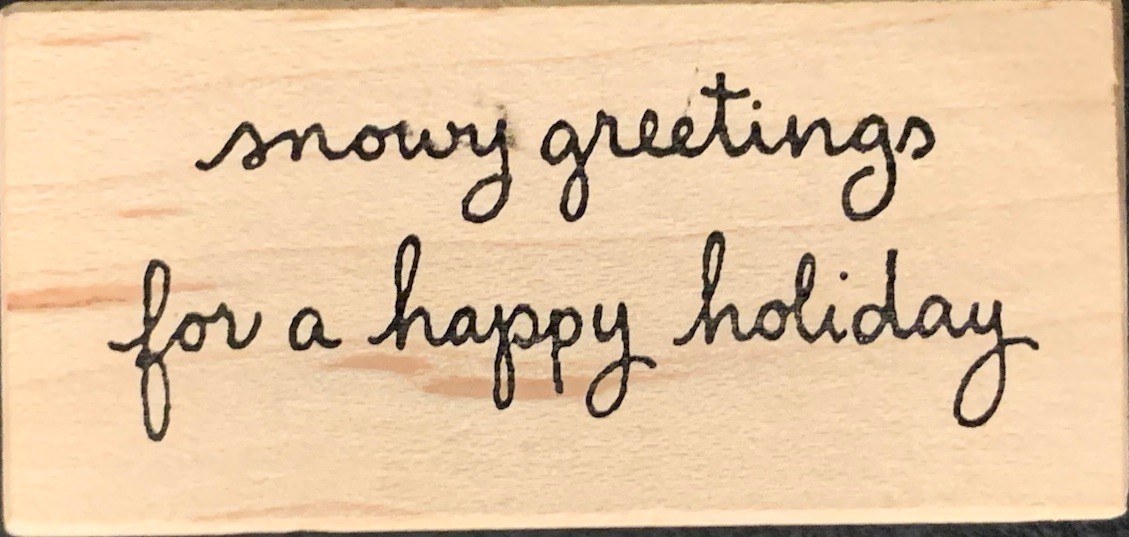 snowy greetings
for a happy holiday